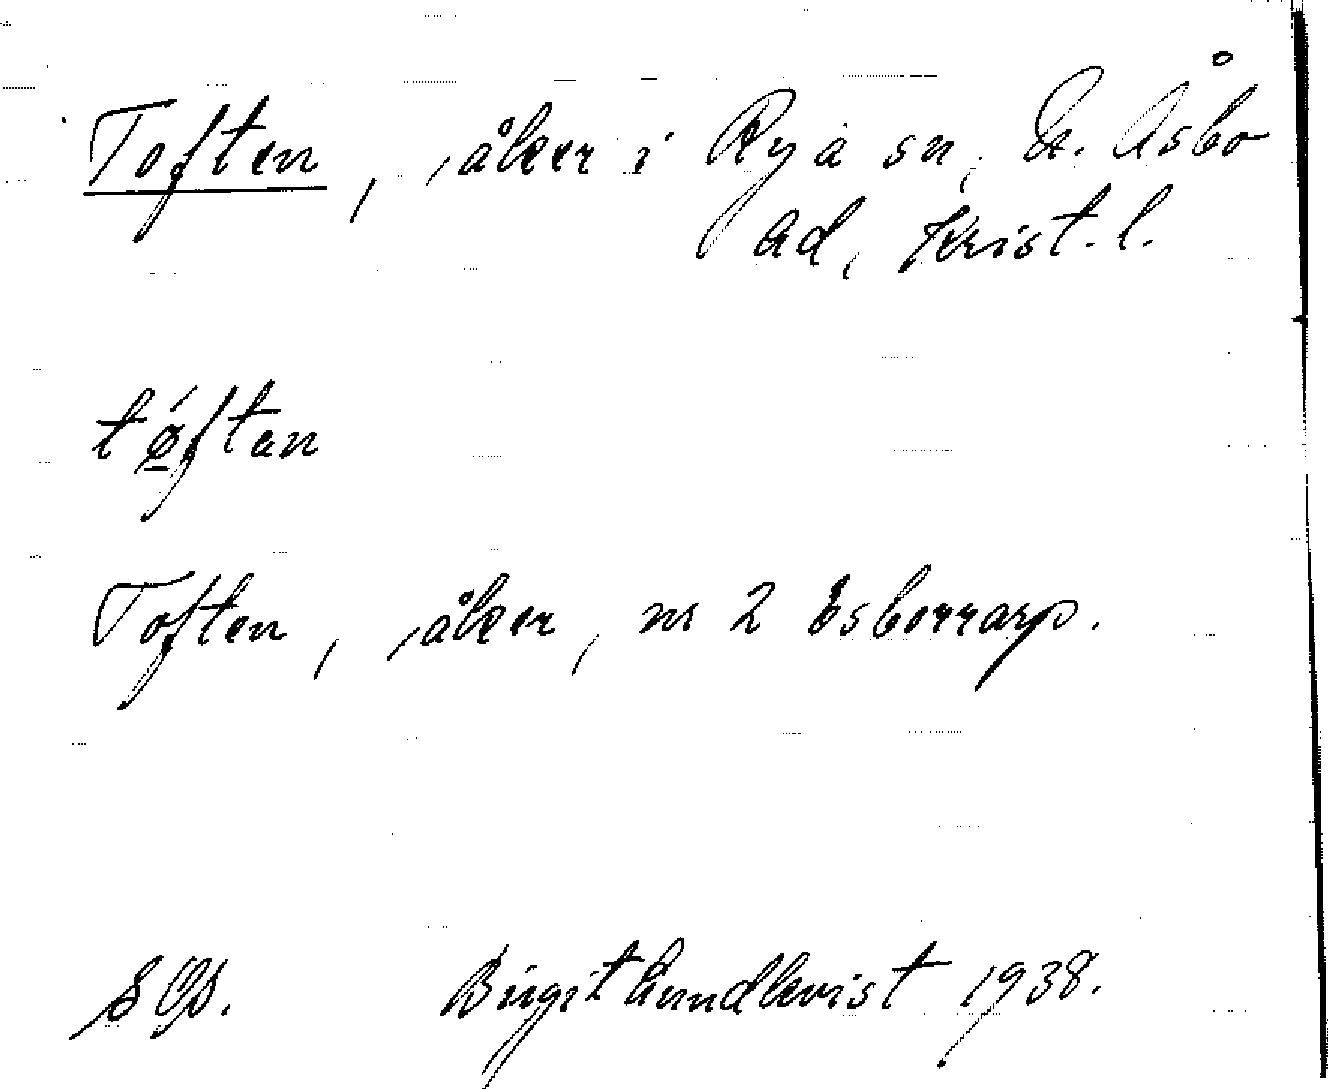 Toften, åker i Rya sn, N. Åsbo
hd, Krist. l.
tǿftan
Toften, åker, nr 2 Esborrarp.
Birgit Lundkvist 1938.